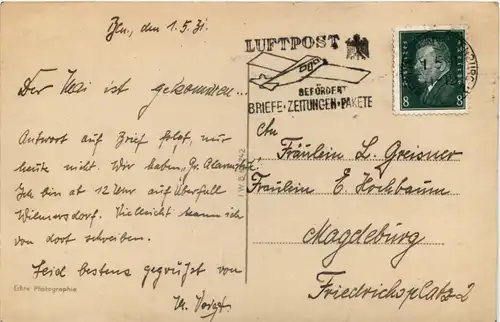 Bln., den 1.5.31.
Der Mai ist gekommen...
Antwort auf Brief folgt, nur
heute nicht. Wir haben „Gr. Alarmstufe".
Ich bin ab 12 Uhr auf Überfall
Wilmersdorf. Vielleicht kann ich
von dort schreiben.
Seid bestens gegrüßt von
Echte Photographie
LUFTPOST
BEFÖRDERT
BRIEFE·ZEITUNGEN·PAKETE
8 8
An
Fräulein L. Greisner
Fräulein E. Hochbaum
Magdeburg
Friedrichsplatz 2